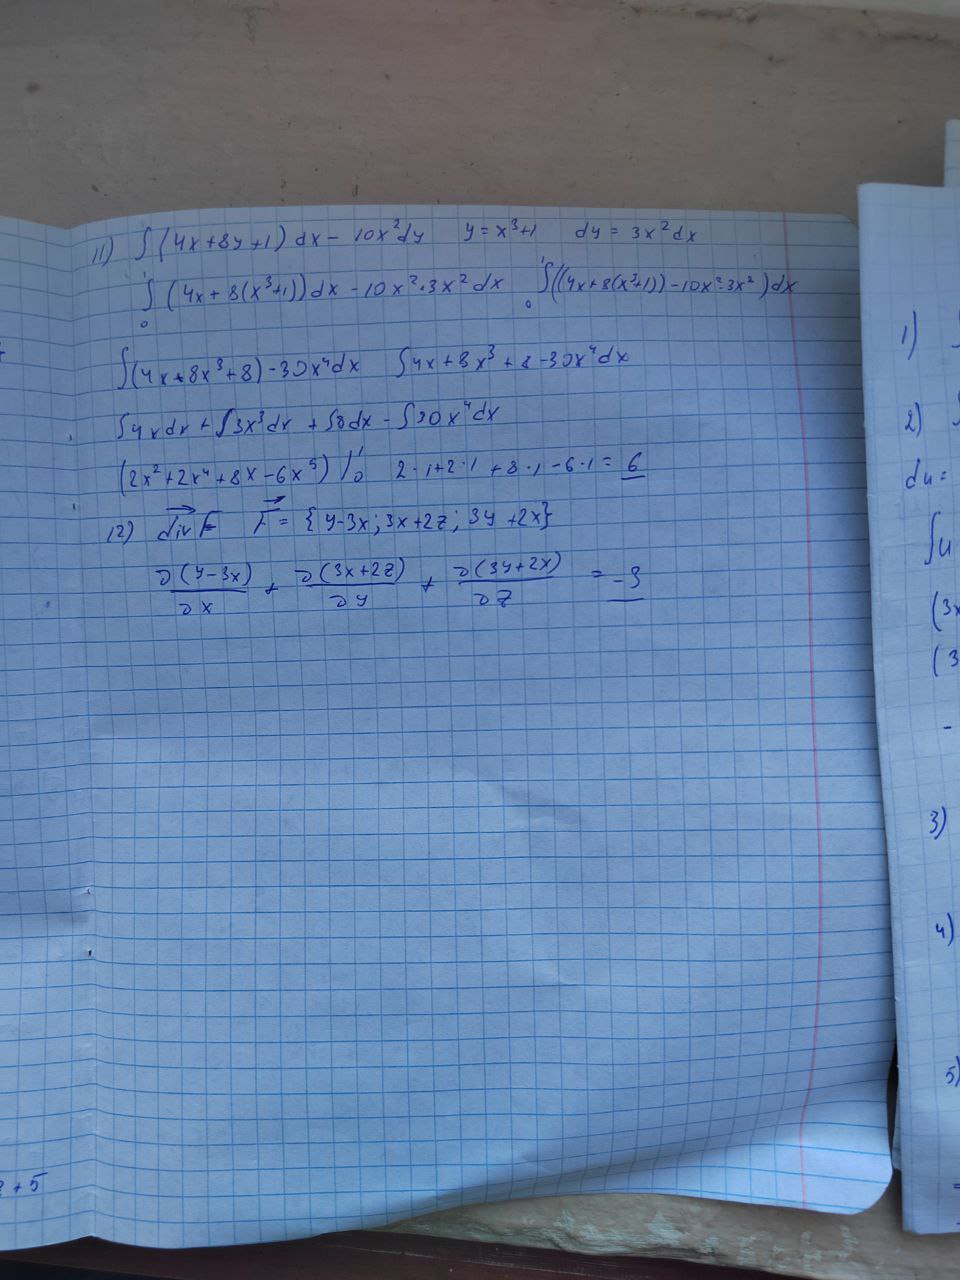 11) ∫(4x+8y+1)dx - 10x²dy y=x³+1 dy = 3x²dx
∫₀¹(4x+8(x³+1))dx - 10x²·3x²dx ∫₀¹((4x+8(x³+1))-10x²·3x²)dx
∫(4x+8x³+8)-30x⁴dx ∫4x+8x³+8-30x⁴dx
∫4xdx + ∫3x³dx + ∫8dx - ∫30x⁴dx
(2x²+2x⁴+8x-6x⁵)|₀¹ 2·1+2·1+8·1-6·1=6
12) div F F = {y-3x; 3x+2z; 3y+2x}
∂(y-3x)/∂x + ∂(3x+2z)/∂y + ∂(3y+2x)/∂z = -3
+5
1)
2)
du=
∫u
(3x
(3
-
3)
4)
5)